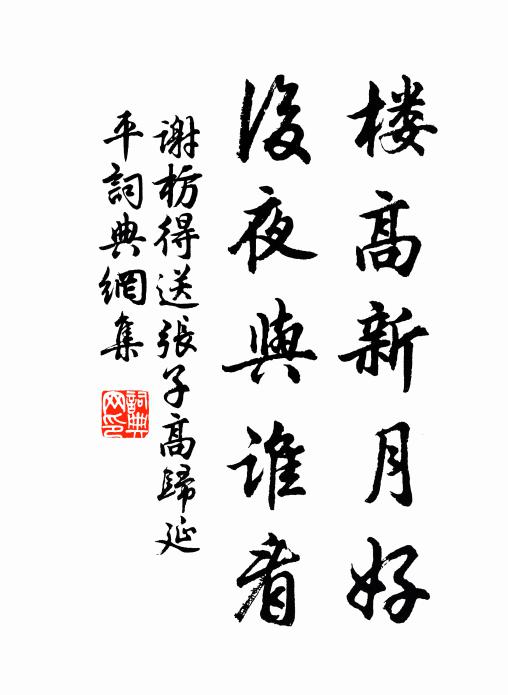 楼高新月好
後夜與谁看
谢枋得送張子高歸延
平詞典網集
詞典
网印